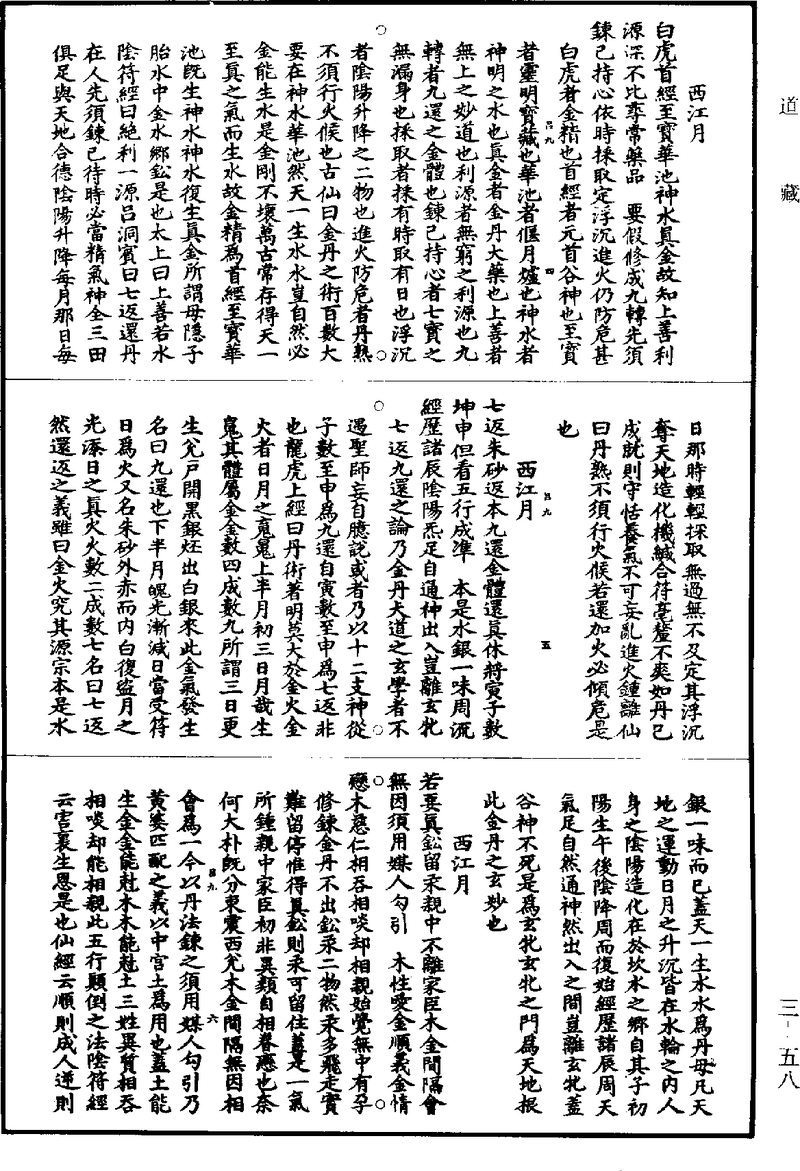 道藏
西江月
白虎首經至寶華池神水真金故知上善利
源深不比尋常藥品　要假修成九轉先須
鍊己持心依時採取定浮沉進火仍防危甚
白虎者金精也首經者元首谷神也至寶
者靈明寶藏也華池者偃月爐也神水者
神明之水也真金者金丹大藥也上善者
無上之妙道也利源者無窮之利源也九
轉者九還之金體也鍊己持心者七寶之
無漏身也採取者採有時取有日也浮沉
者陰陽升降之二物也進火防危者丹熟
不須行火候也古仙曰金丹之術百數大
要在神水華池然天一生水水豈自然必
金能生水是金剛不壞萬古常存得天一
至真之氣而生水故金精為首經至寶華
池既生神水神水復生真金所謂母隱子
胎水中金水鄉鈆是也太上曰上善若水
陰符經曰絕利一源呂洞賓曰七返還丹
在人先須鍊己待時必當精氣神全三田
俱足與天地合德陰陽升降每月那日每
日那時輕輕採取無過無不及定其浮沉
奪天地造化機緘合符毫釐不爽如丹已
成就則守恬養氣不可妄亂進火鍾離仙
曰丹熟不須行火候若還加火必傾危是
也
西江月
七返朱砂返本九還金體還真休將寅子數
坤申但看五行成準　本是水銀一味周流
經歷諸辰陰陽炁足自通神出入豈離玄牝
七返九還之論乃金丹大道之玄學者不
遇聖師妄自臆說或者乃以十二支神從
子數至申為九還自寅數至申為七返非
也龍虎上經曰丹術著明莫大於金火金
火者日月之魂魄上半月初三日月哉生
䰟其體屬金金數四成數九所謂三日更
生兊戶開黑銀坯出白銀來此金氣發生
名曰九還也下半月魄光漸減日當受符
日為火又名朱砂外赤而內白復盜月之
光添日之真火火數二成數七名曰七返
然還返之義雖曰金火究其源宗本是水
銀一味而已蓋天一生水水為丹母凡天
地之運動日月之升沉皆在水輪之內人
身之陰陽造化在於坎水之鄉自其子初
陽生午後陰降周而復始經歷諸辰周天
氣足自然通神然出入之間豈離玄牝蓋
谷神不死是為玄牝玄牝之門為天地根
此金丹之玄妙也
西江月
若要真鈆留汞親中不離家臣木金間隔會
無因須用媒人勾引　木性愛金順義金情
戀木慈仁相吞相啖却相親始覺男中有孕
修鍊金丹不出鈆汞二物然汞多飛走實
難留停惟得真鈆則汞可留住蓋是一氣
所鍾親中家臣初非異類自相眷戀也奈
何大朴既分東震西兊木金間隔無因相
會為一今以丹法鍊之須用媒人勾引乃
黃婆匹配之義以中宮土為用也蓋土能
生金金能尅木木能尅土三姓異質相吞
相啖却能相親此五行顛倒之法陰符經
云害裏生恩是也仙經云順則成人逆則
三—五八